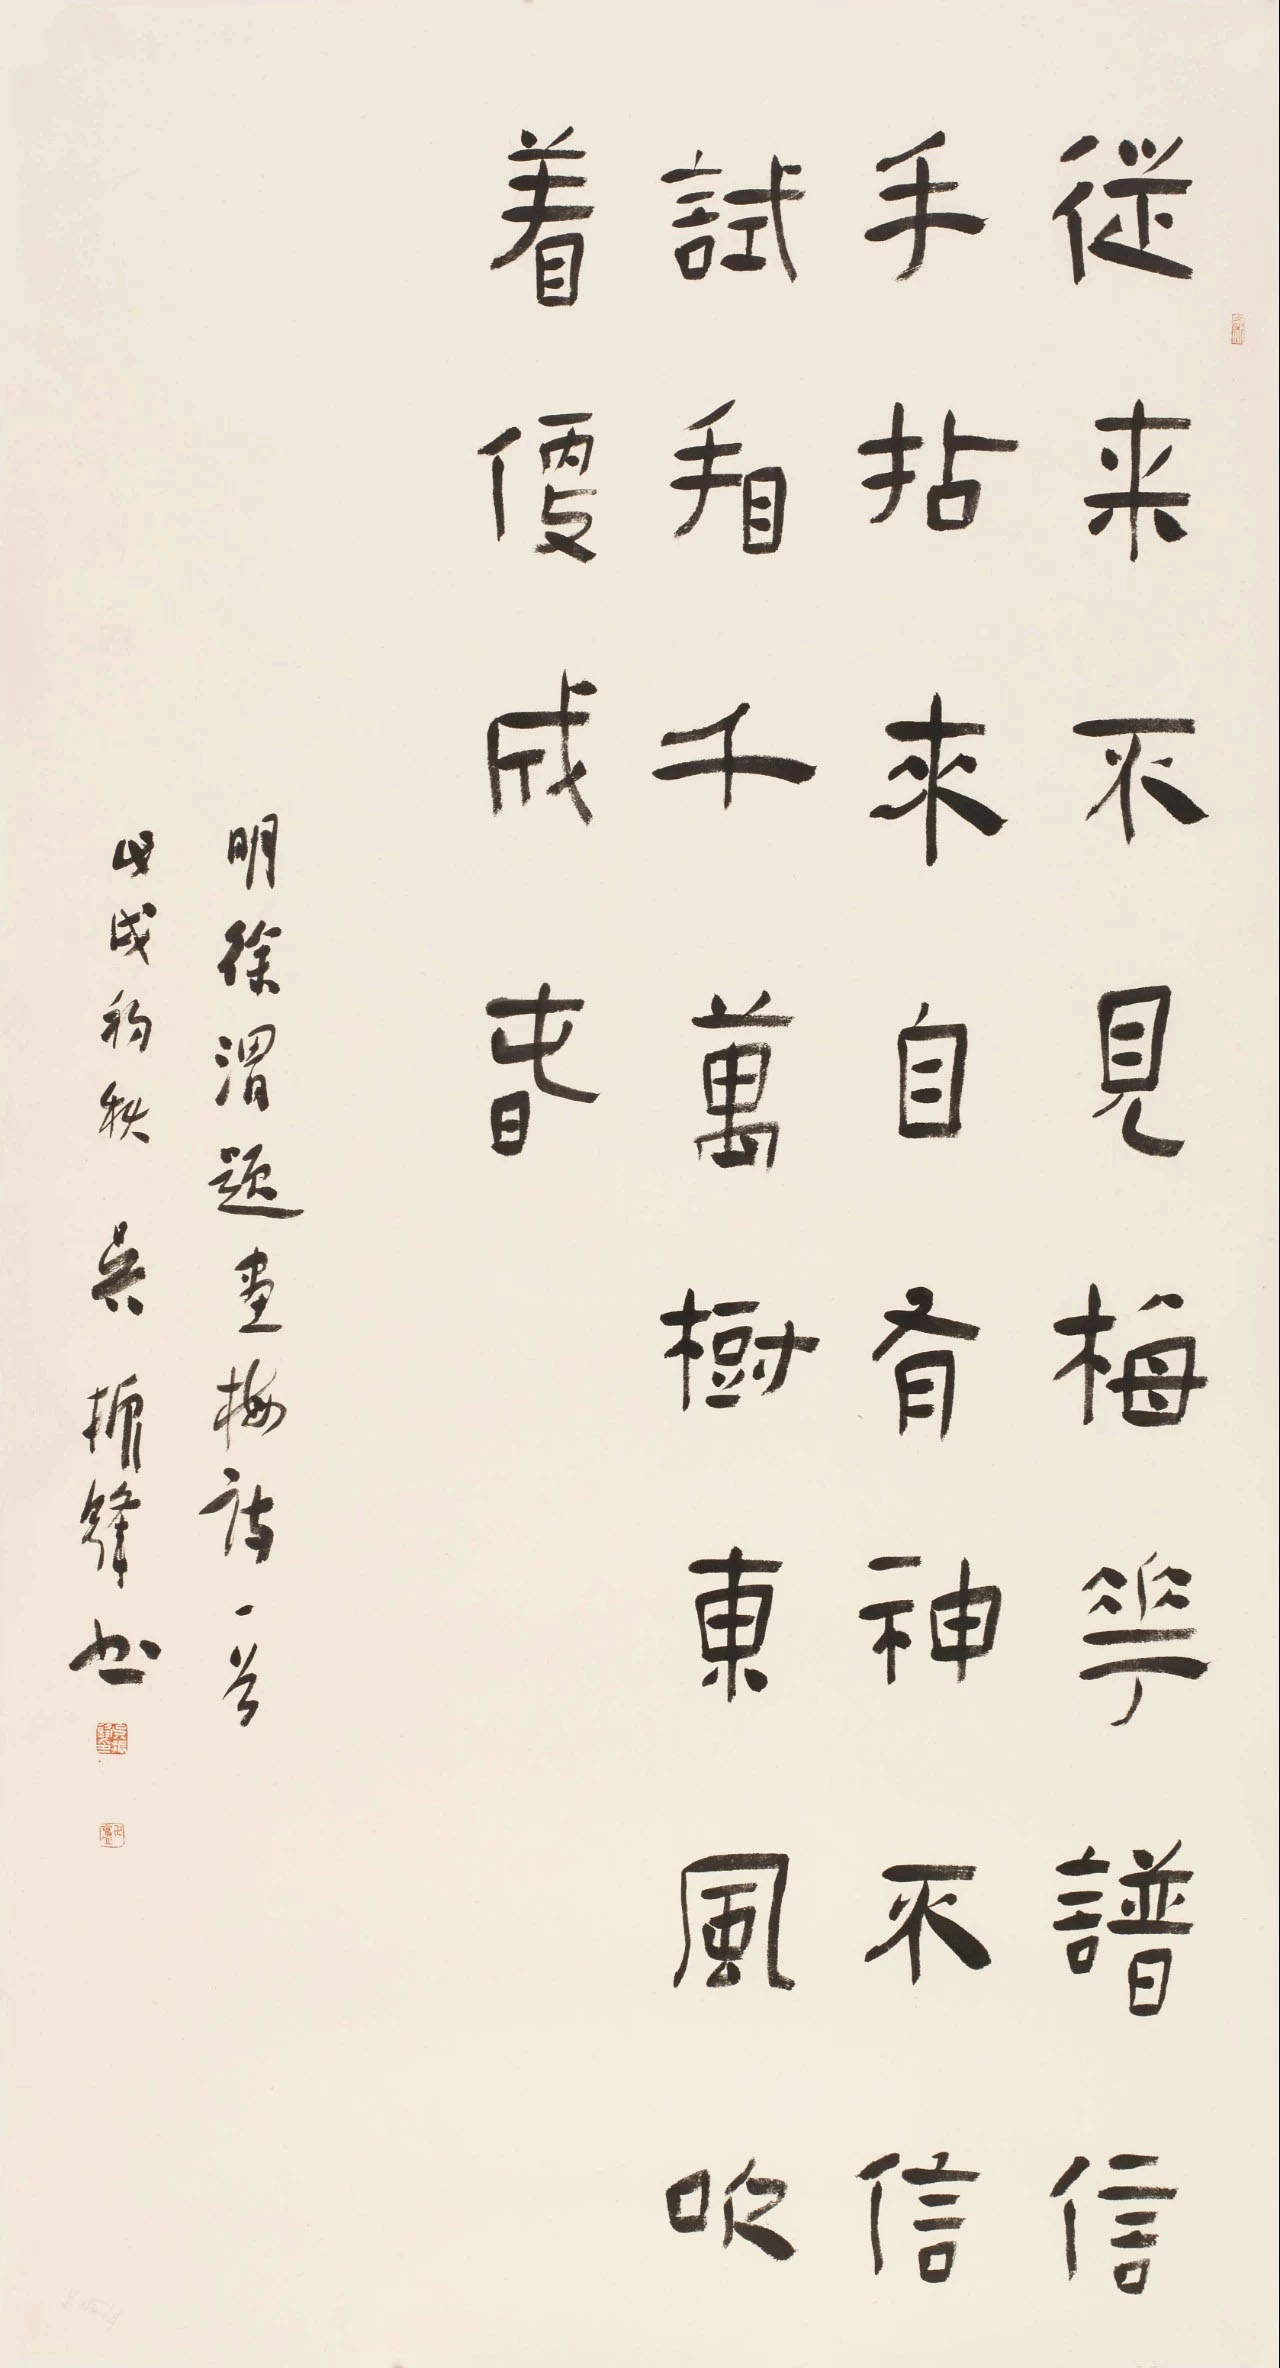 從来不見梅華譜信
手拈來自有神不信
試看千萬樹東風吹
着便成春
明徐渭題畫梅詩一首
戊戌初秋 吳振鋒書